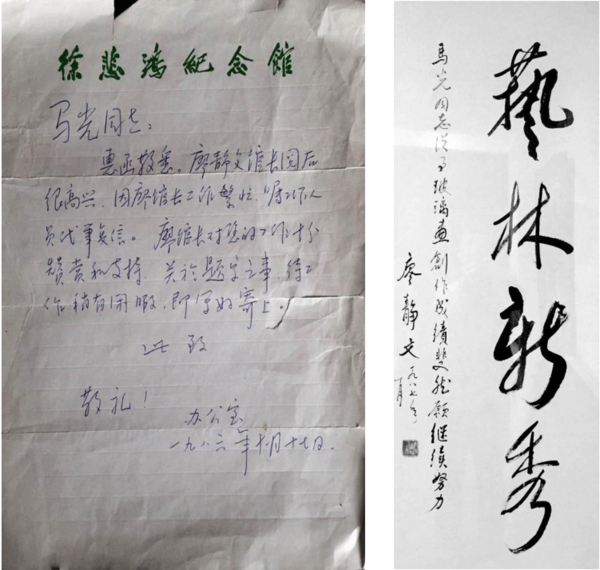 徐悲鸿纪念馆
马光同志:
惠函敬悉。廖静文馆长阅后
很高兴,因廖馆长工作繁忙,嘱工作人
员代事复信。廖馆长对您的工作十分
赞赏和支持,关於题字之事,待工
作稍有闲暇,即写好寄上。
此致
敬礼!
办公室
一九八六年十月十七日.
藝林新秀
馬光同志從事玻璃畫創作成績斐然願繼續努力
廖靜文一九八七年